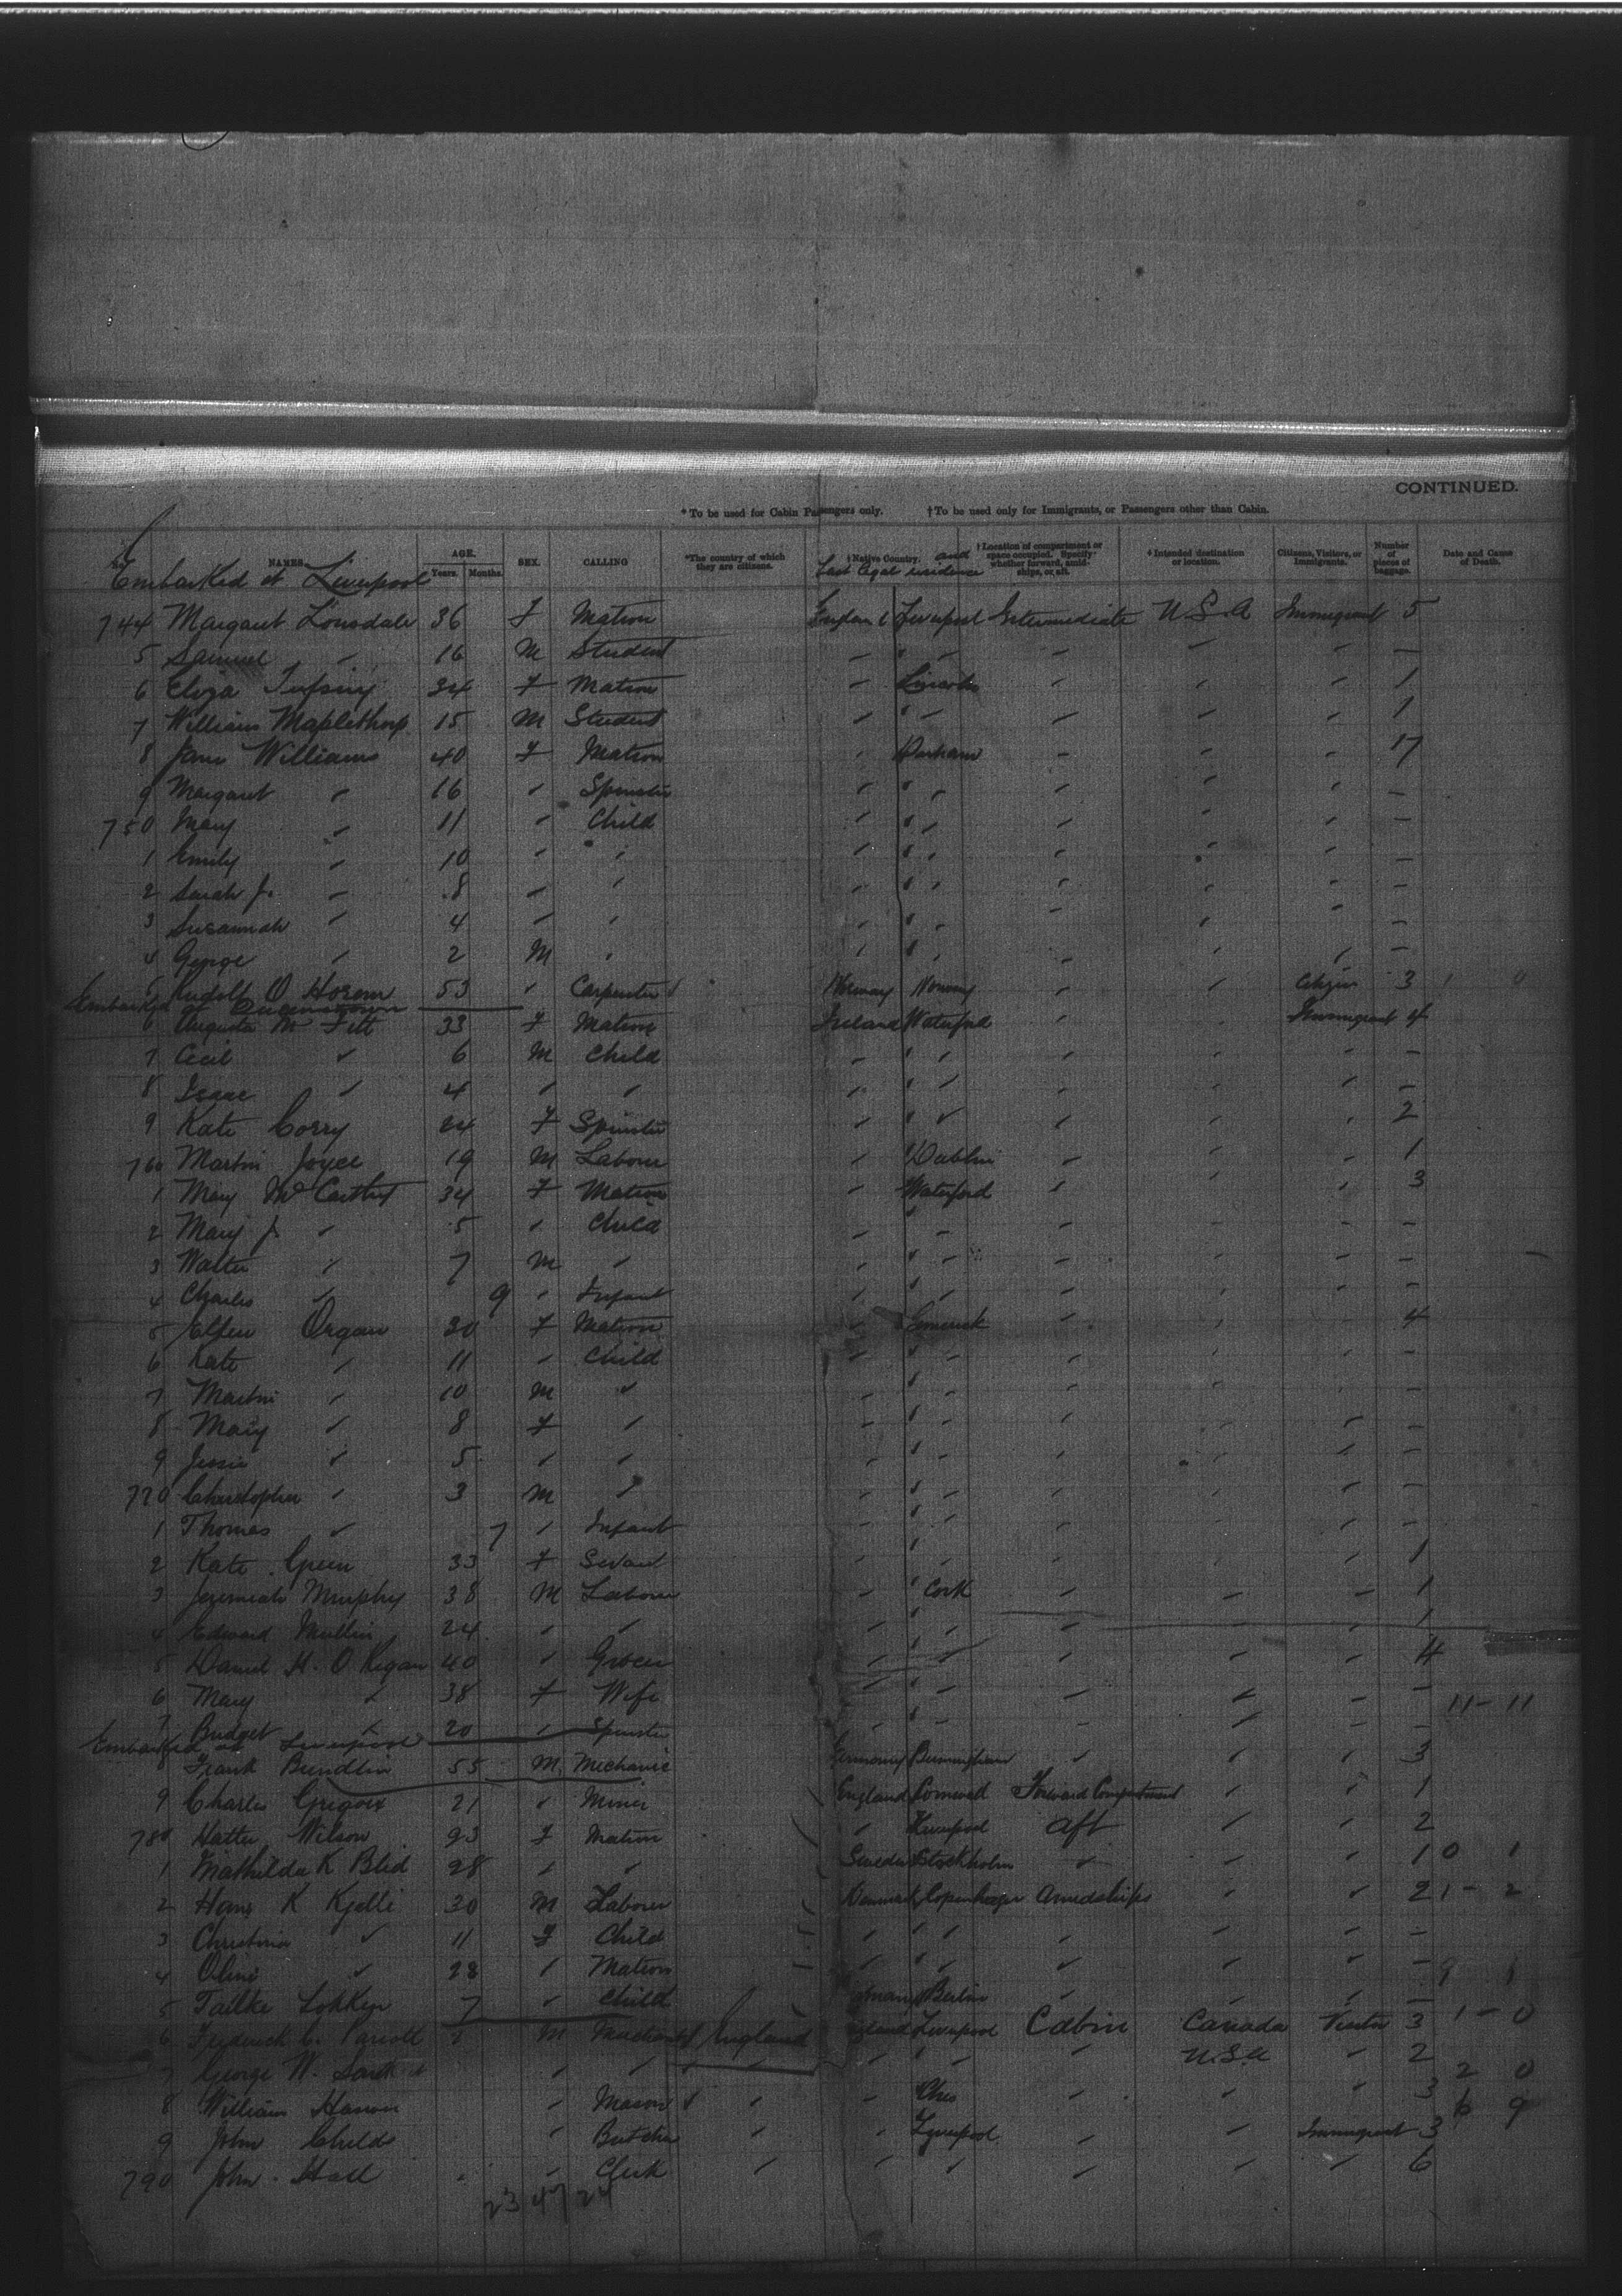 CONTINUED.
* To be used for Cabin Passengers only. † To be used only for Immigrants, or Passengers other than Cabin.
NAMES. AGE. Years. Months. SEX. CALLING *The country of which they are citizens. †Native Country. and Last legal residence †Location of compartment or space occupied. Specify whether forward, amidships, or aft. Intended destination or location. Citizens, Visitors, or Immigrants. Number of pieces of baggage. Date and Cause of Death.
Embarked at Liverpool
744 Margaret Lonsdale 36 F Matron England Liverpool Intermediate U.S.A Immigrant 5
5 Samuel " 16 M Student " " " " " " –
6 Eliza 34 F Matron " Lincoln " " " 1
7 William Maplethorp 15 M Student " " " " " " 1
8 Jane Williams 40 F Matron " Durham " " " 17
9 Margaret " 16 " Spinster " " " " " " –
750 Mary " 11 " Child " " " " " " –
1 Emily " 10 " " " " " " " " –
2 Sarah J. " 8 " " " " " " " " –
3 Susannah " 4 " " " " " " " " –
4 George " 2 M " " " " " " " –
5 Rudolf O 53 " Carpenter Norway Norway " " Citizen 3
Embarked at Queenstown
6 Augusta M Fitt 33 F Matron Ireland Waterford " " Immigrant 4
7 Cecil " 6 M Child " " " " " " –
8 Isaac " 4 " " " " " " " " –
9 Kate Corry 24 F Spinster " " " " " " 2
760 Martin Joyce 19 M Laborer " Dublin " " " 1
1 Mary McCarthy 34 F Matron " Waterford " " " 3
2 Mary J. " 5 " Child " " " " " " –
3 Walter " 7 M " " " " " " " –
4 Charles " 9 " Infant " " " " " " –
5 Ellen Organ 30 F Matron " Limerick " " " 4
6 Kate " 11 " Child " " " " " " –
7 Martin " 10 M " " " " " " " –
8 Mary " 8 F " " " " " " " –
9 Jessie " 5 " " " " " " " " –
770 Christopher " 3 M " " " " " " " –
1 Thomas " 7 " Infant " " " " " " –
2 Kate Green 33 F Servant " " " " " " 1
3 Jeremiah Murphy 38 M Laborer " Cork " " " 1
4 Edward Mullin 24 " " " " " " " 1
5 Daniel H. O Regan 40 " Grocer " " " " " 4
6 Mary " 38 F Wife " " " " " – 11 – 11
7 Bridget " 20 " Spinster " " " " " –
Embarked at Liverpool
8 Frank Bundlin 55 M. Mechanic Germany Birmingham " " " 3
9 Charles 21 " Miner England Cornwall Forward Compartment " " 1
780 Wilson 23 F Matron " Liverpool aft " " 2
1 Mathilda K Blid 28 " " Sweden Stockholm " " " 1 0 1
2 Hans K Kjelli 30 M Laborer Denmark Copenhagen Amidships " " 2 1 – 2
3 Christina " 11 F Child " " " " " " –
4 Oline " 28 " Matron " " " " " " – 9 1
5 7 " Child Berlin " " " –
6 Frederick C. M Merchant England Liverpool Cabin Canada Visitor 3 1 – 0
7 George W. " " " " " " " U.S.A " 2 2 0
8 William " Mason " " " " " 3 6 9
9 John Childs " Butcher " " Liverpool " " Immigrant 3
790 John Hall " Clerk " " " " " " 6
23 47 24